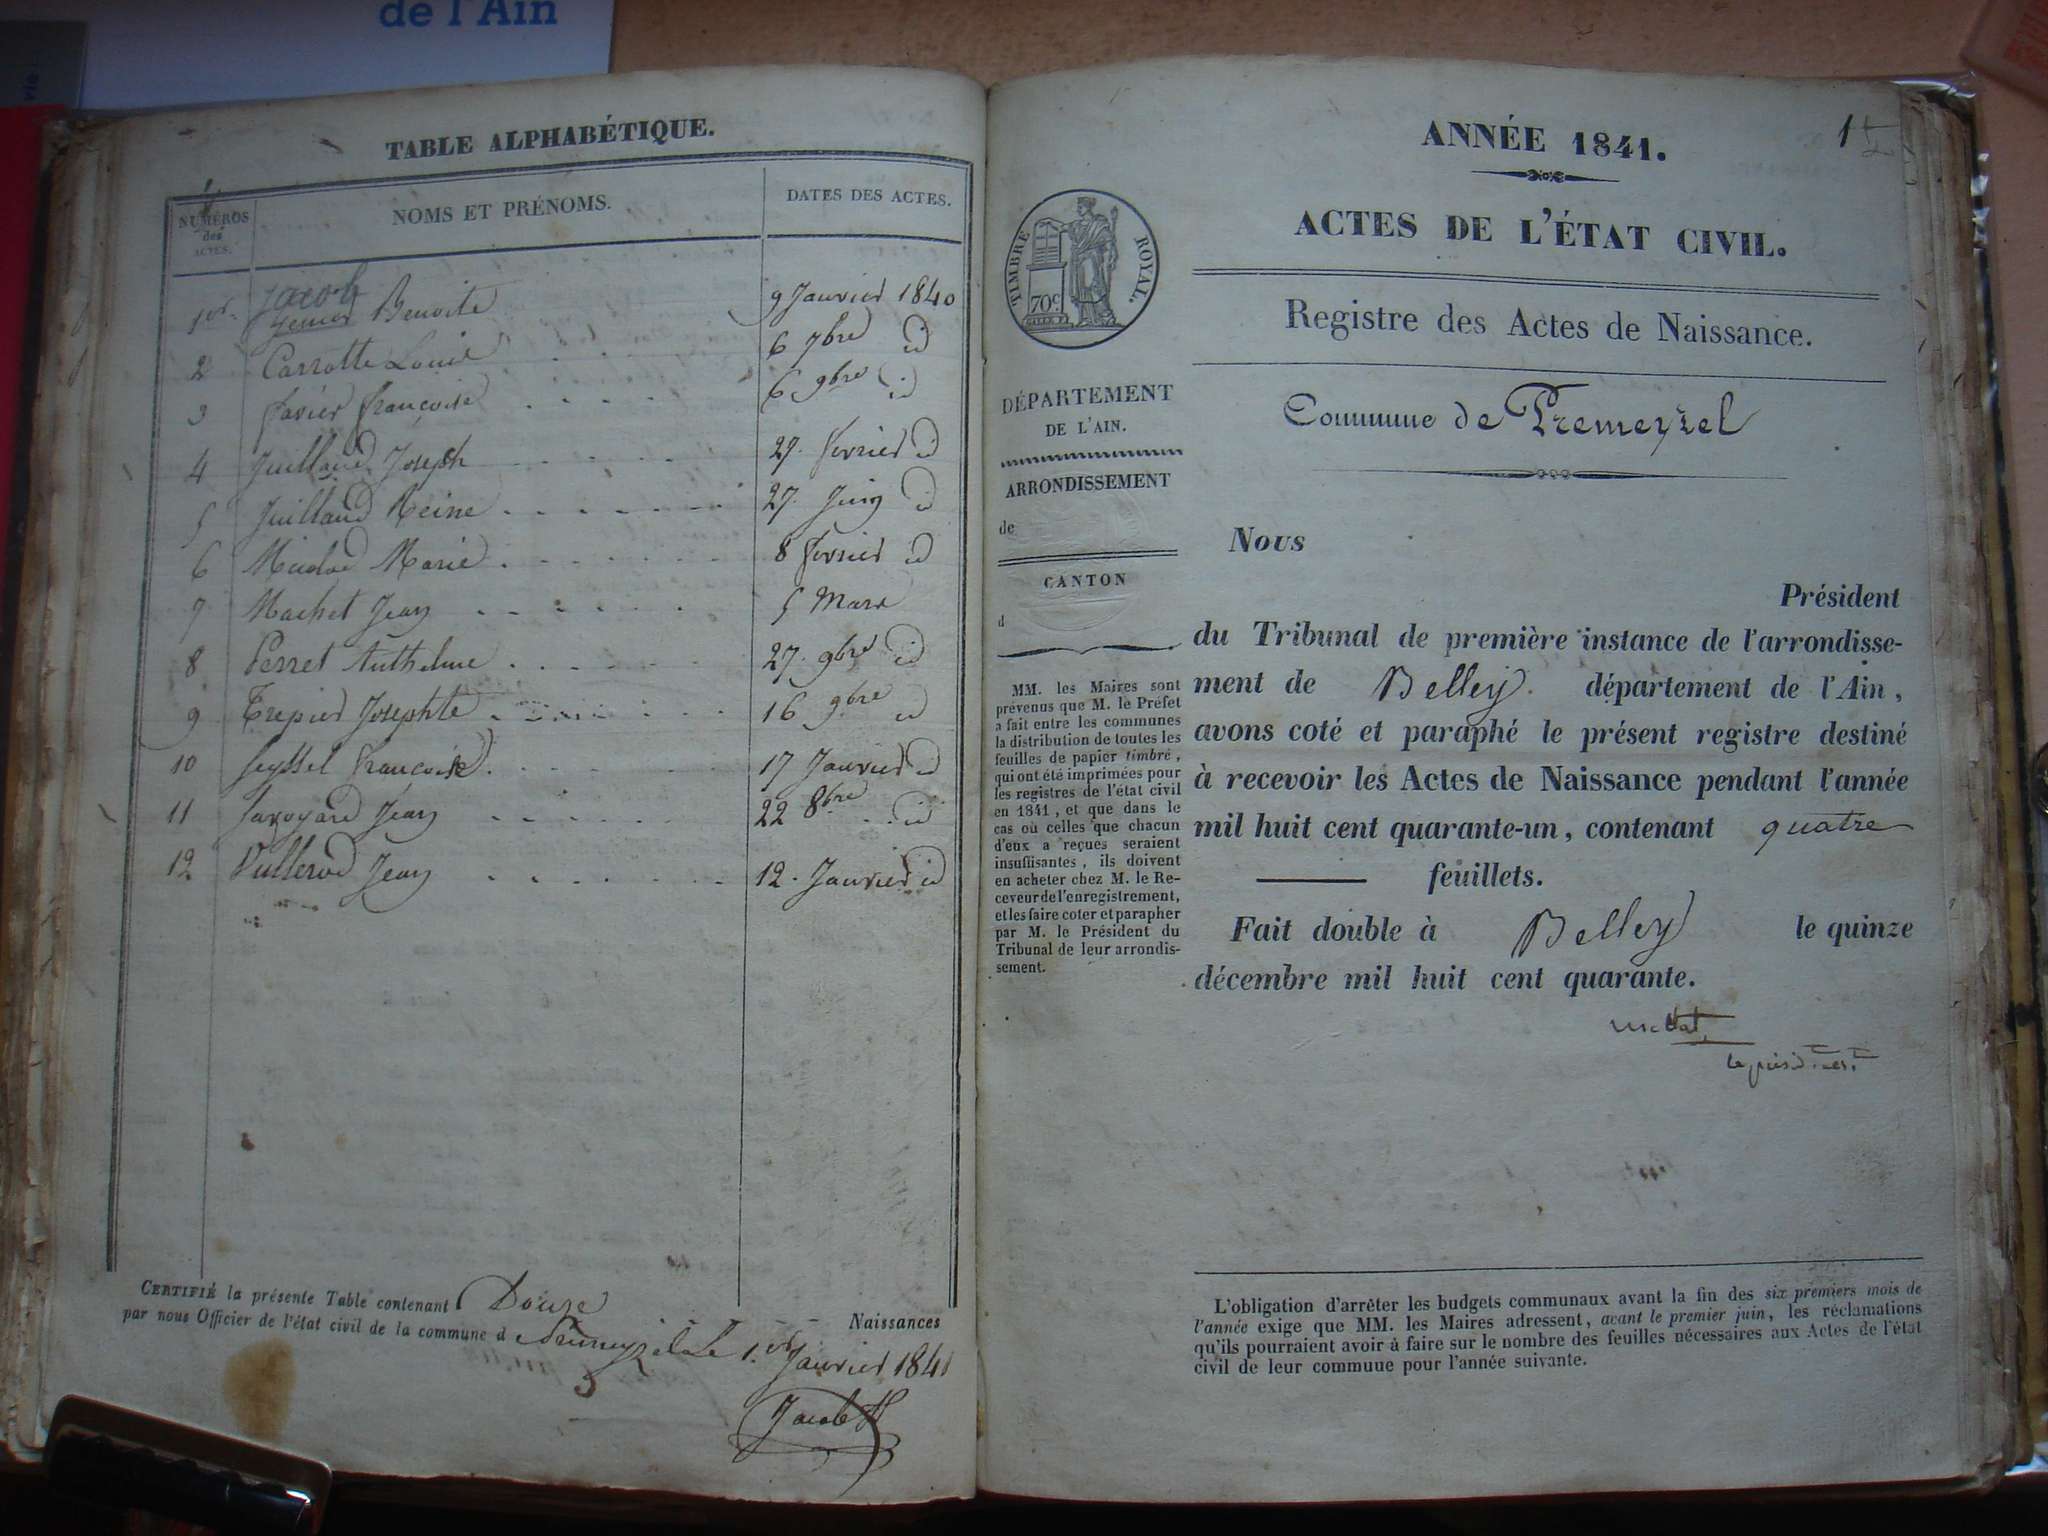 de l'Ain
TABLE ALPHABÉTIQUE.
NUMÉROS des ACTES.
NOMS ET PRÉNOMS.
DATES DES ACTES.
1er Jacob Benoite 9 Janvier 1840
2 Carrotte Louise 6 7bre id
3 favier françoise 6 9bre id
4 Juilland Joseph 29. fevrier id
5 Juilland Reine 27. Juin id
6 Marie 8 fevrier id
7 Machet Jean 5 Mars
8 Perret Anthelme 27. 9bre id
9 Trepier Josephte 16 9bre id
10 Seyssel françoise 17 Janvier id
11 Savoyard Jean 22 8bre id
12 Vullerod Jean 12. Janvier id
CERTIFIÉ la présente Table contenant Douze Naissances
par nous Officier de l'état civil de la commune d Premeyzel Le 1.er Janvier 1841
Jacob
ANNÉE 1841.
1
ACTES DE L'ÉTAT CIVIL.
TIMBRE ROYAL.
70c
Registre des Actes de Naissance.
Commune de Premeyzel
DÉPARTEMENT
DE L'AIN.
ARRONDISSEMENT
de
CANTON
d
MM. les Maires sont
prévenus que M. le Préfet
a fait entre les communes
la distribution de toutes les
feuilles de papier timbré,
qui ont été imprimées pour
les registres de l'état civil
en 1841, et que dans le
cas où celles que chacun
d'eux a reçues seraient
insuffisantes, ils doivent
en acheter chez M. le Re-
ceveur de l'enregistrement,
et les faire coter et parapher
par M. le Président du
Tribunal de leur arrondis-
sement.
Nous
Président
du Tribunal de première instance de l'arrondisse-
ment de Belley. département de l'Ain,
avons coté et paraphé le présent registre destiné
à recevoir les Actes de Naissance pendant l'année
mil huit cent quarante-un, contenant quatre
feuillets.
Fait double à Belley le quinze
décembre mil huit cent quarante.
L'obligation d'arrêter les budgets communaux avant la fin des six premiers mois de
l'année exige que MM. les Maires adressent, avant le premier juin, les réclamations
qu'ils pourraient avoir à faire sur le nombre des feuilles nécessaires aux Actes de l'état
civil de leur commune pour l'année suivante.